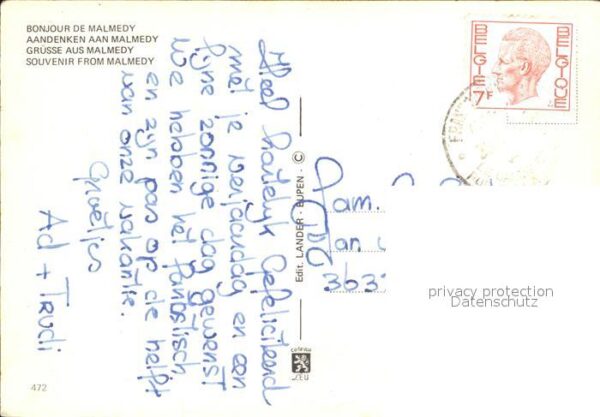 BONJOUR DE MALMEDY
AANDENKEN AAN MALMEDY
GRÜSSE AUS MALMEDY
SOUVENIR FROM MALMEDY
Heel hartelijk Gefeliciteerd
met je verjaardag en een
fijne zonnige dag gewenst
We hebben het fantastisch,
en zijn pas op de helft
van onze vakantie.
Groetjes
Ad + Trudi
Edit. LANDER - EUPEN - ©
BELGIE
BELGIQUE
7F
Fam.
363
privacy protection
Datenschutz
472